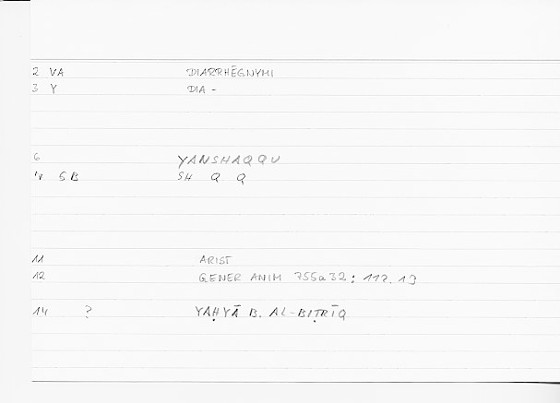 2 VA DIARRHĒGNYMI
3 Y DIA -
6 YANSHAQQU
SB SH Q Q
11 ARIST
12 GENER ANIM 755a32 : 117.13
14 ? YAḤYĀ B. AL-BIṬRĪQ